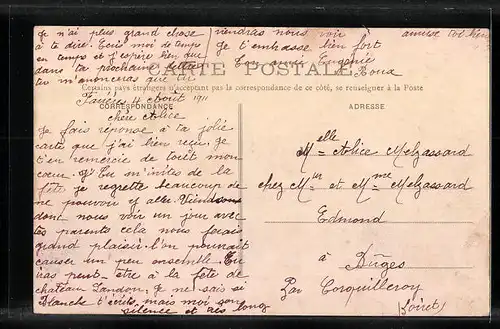 Je n'ai plus grand chose
à te dire. Ecris moi de temps
en temps et j'espère bien que
dans ta prochaine lettre
tu m'annonceras que tu
viendras nous voir
Je t'embrasse bien fort
Ton amie Eugénie
Roux
CARTE POSTALE
Certains pays étrangers n'acceptant pas la correspondance de ce côté, se renseigner à la Poste
CORRESPONDANCE
ADRESSE
11 Août 1911
chère Alice
Je fais réponse à ta jolie
carte que j'ai bien reçue, je
t'en remercie de tout mon
cœur. Tu m'invites de la
fête je regrette beaucoup de
ne pouvoir y aller.
dont nous voir un jour avec
tes parents cela nous ferais
grand plaisir l'on pourrait
causer un peu ensemble. Tu
iras peut-être à la fête de
chateau Landon, Je ne sais si
Blanche t'écrit, mais moi son
silence est très long
Melle Alice Melzassard
chez Mur et Mme Melzassard
Edmond
à Buges
Par Corquilleroy
Loiret